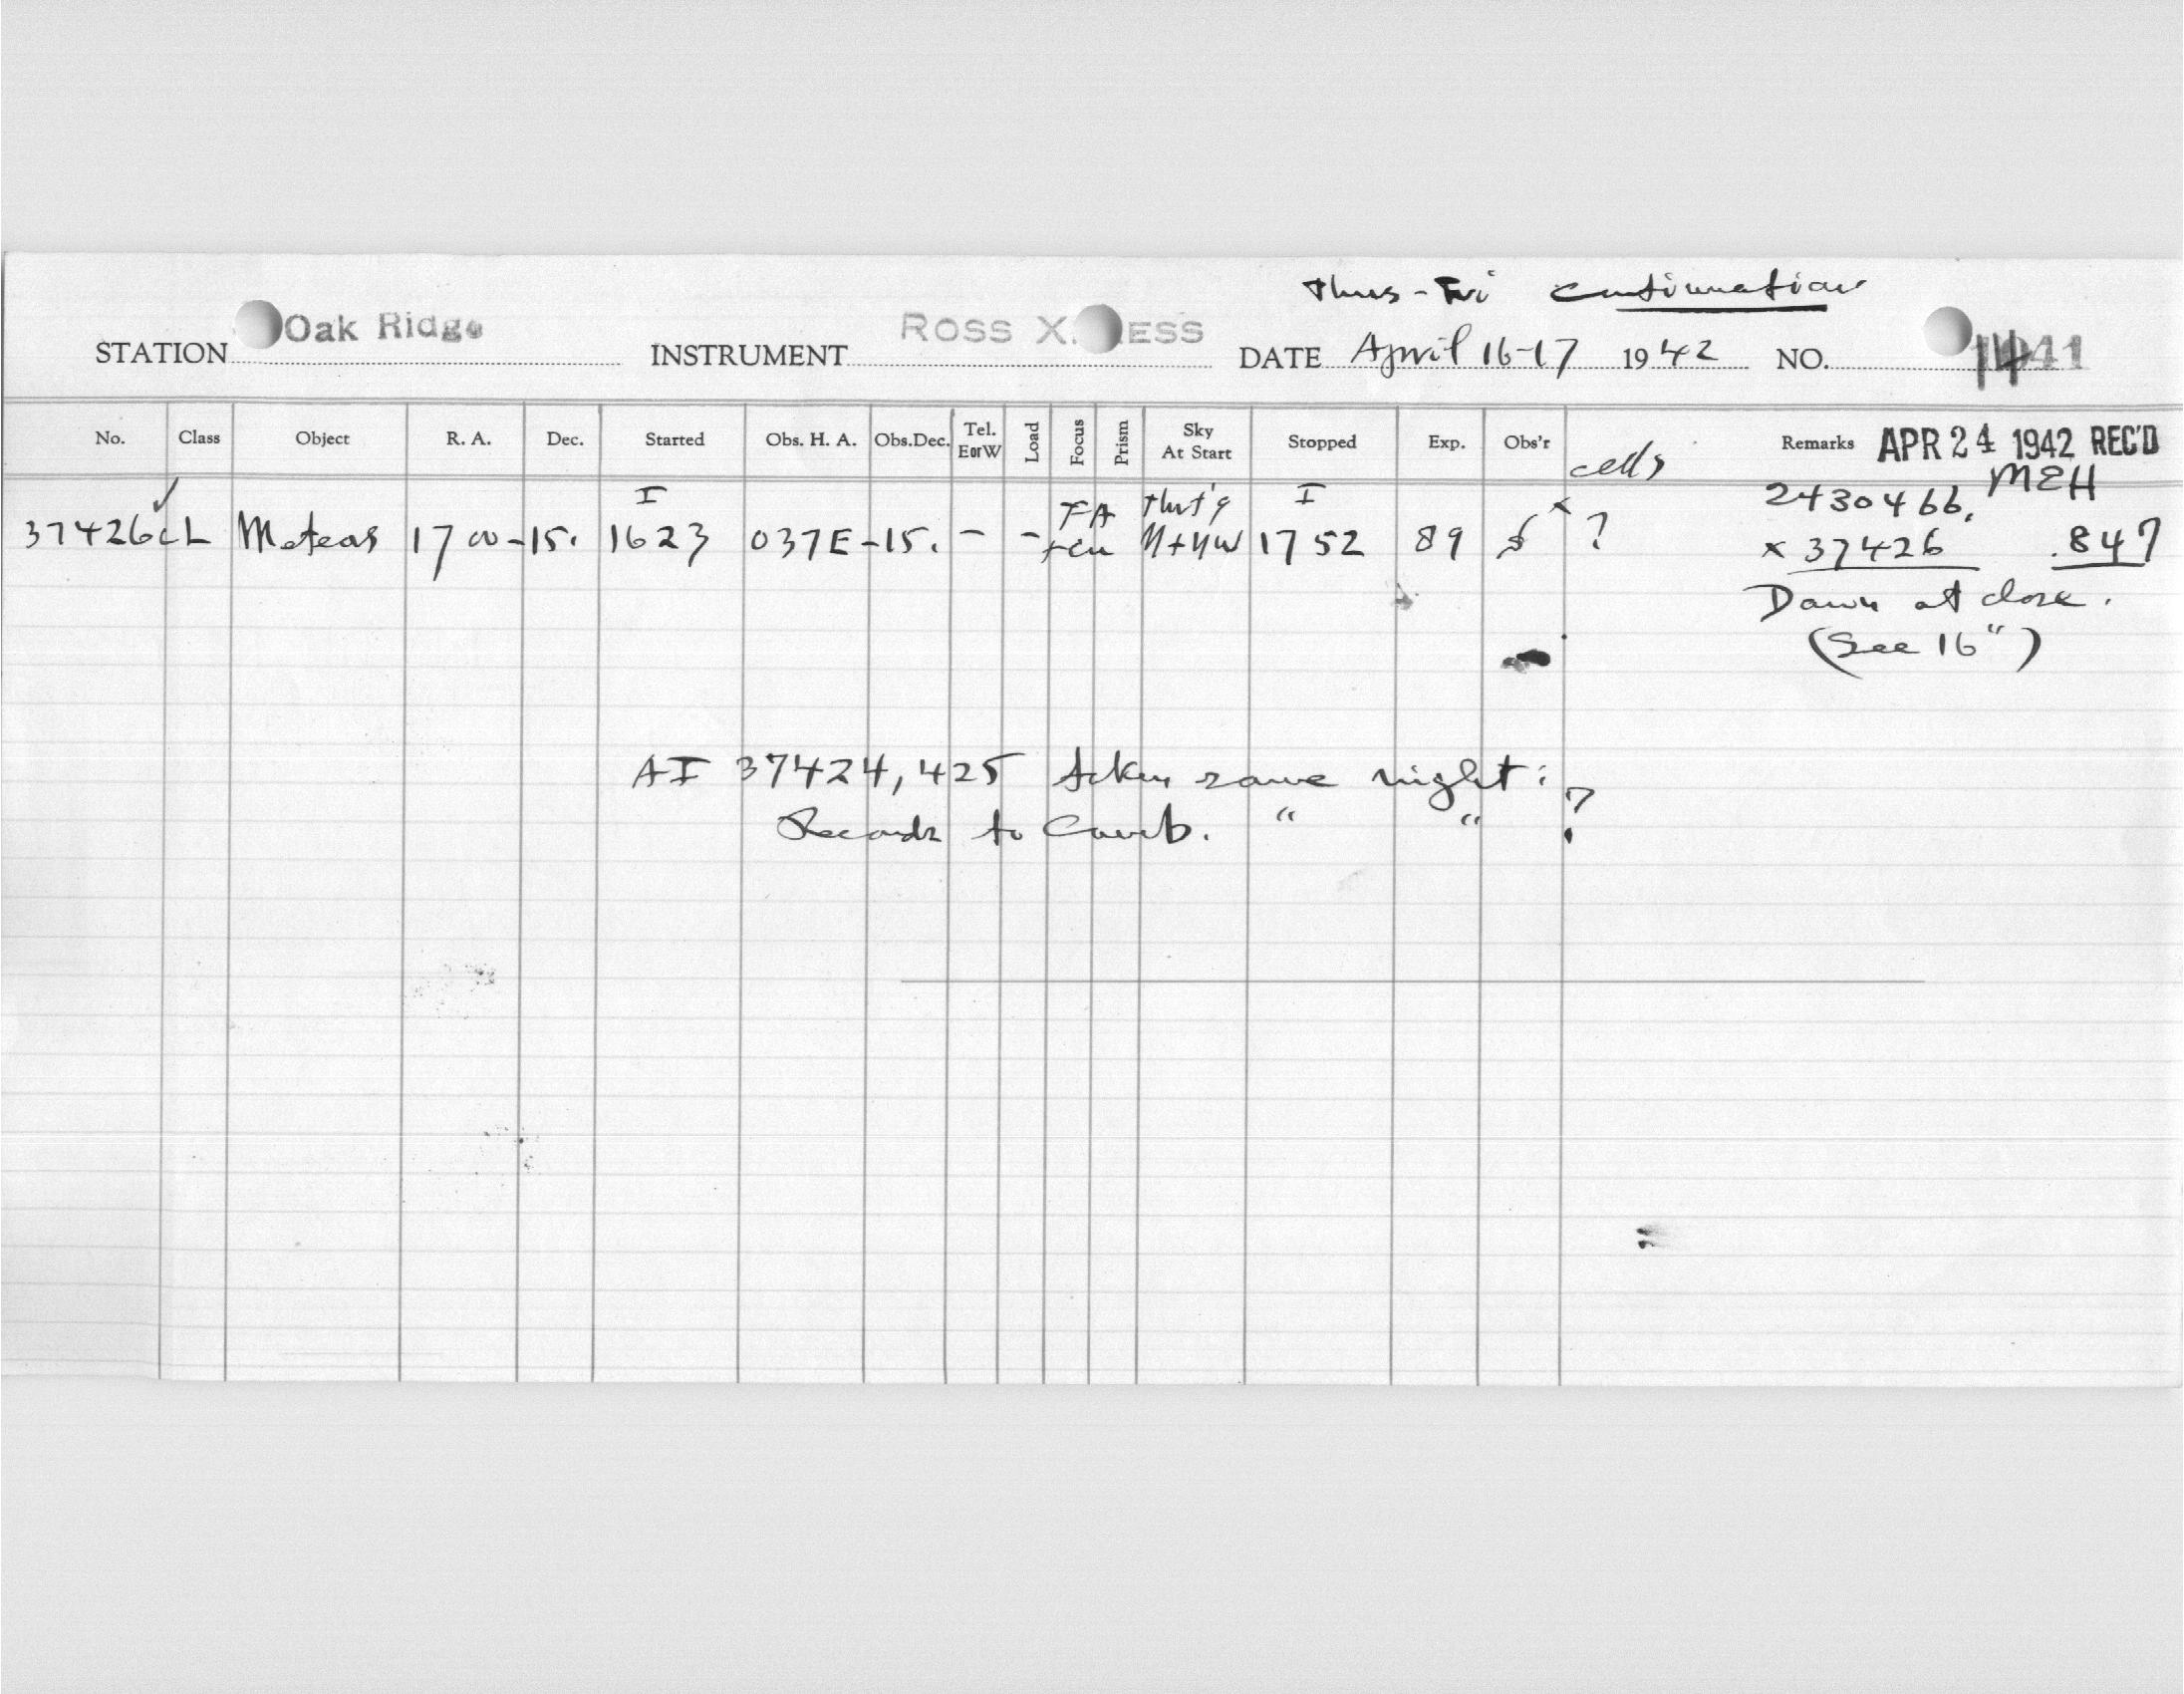 Thurs-Fri Continuation
STATION Oak Ridge INSTRUMENT ROSS X. ESS DATE April 16-17 1942 NO. 1441
No. Class Object R. A. Dec. Started Obs. H. A. Obs.Dec. Tel. E or W Load Focus Prism Sky At Start Stopped Exp. Obs'r cells Remarks APR 24 1942 REC'D
MEH
I I 2430466.
37426 cL Meteors 17 00 -15. 1623 037E -15. - - FA N+NW 1752 89 ? x 37426 .847
Dawn at close.
(See 16")
AI 37424, 425 taken same night:
Records to Camb. " " ?